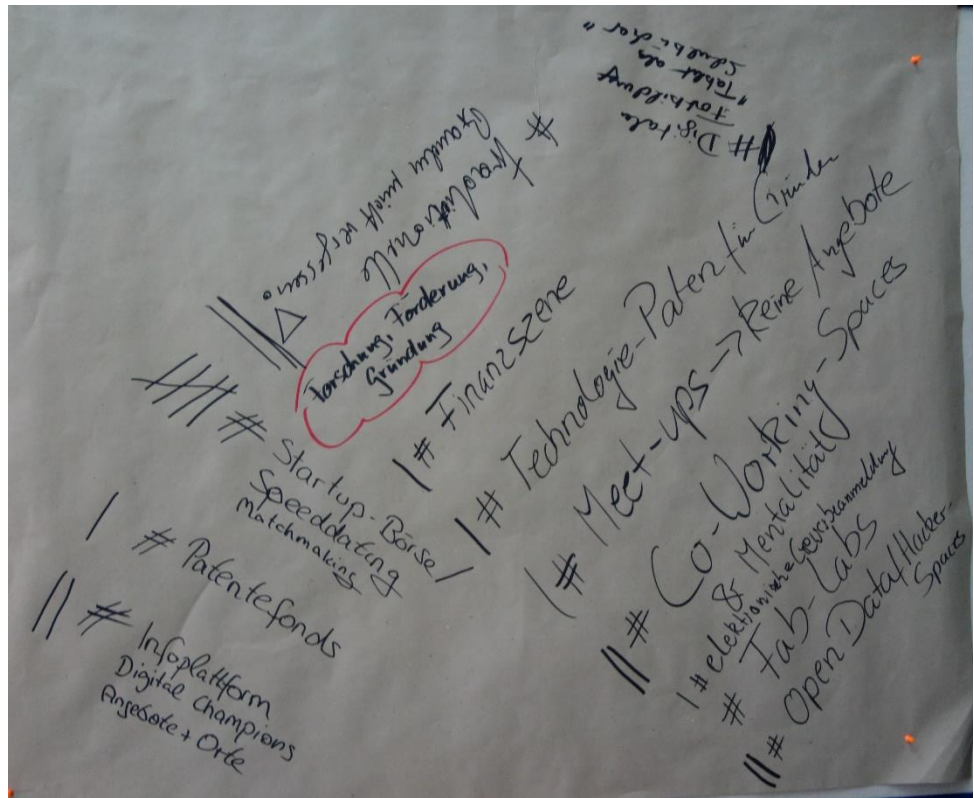 # Digitale
Fortbildung
"Tablet als
# Traditionelle
Branchen nicht vergessen.
Forschung, Förderung,
Gründung
# Startup-Börse/
Speeddating
Matchmaking
# Patentefonds
# Infoplattform
Digital Champions
Angebote + Orte
# Finanzszene
# Technologie-Paten für Gründer
# Meet-ups → keine Angebote
# Co-Working-Spaces
& Mentalität
# elektronische Gewerbeanmeldung
# Fab-Labs
# Open Data/Hacker-
Spaces